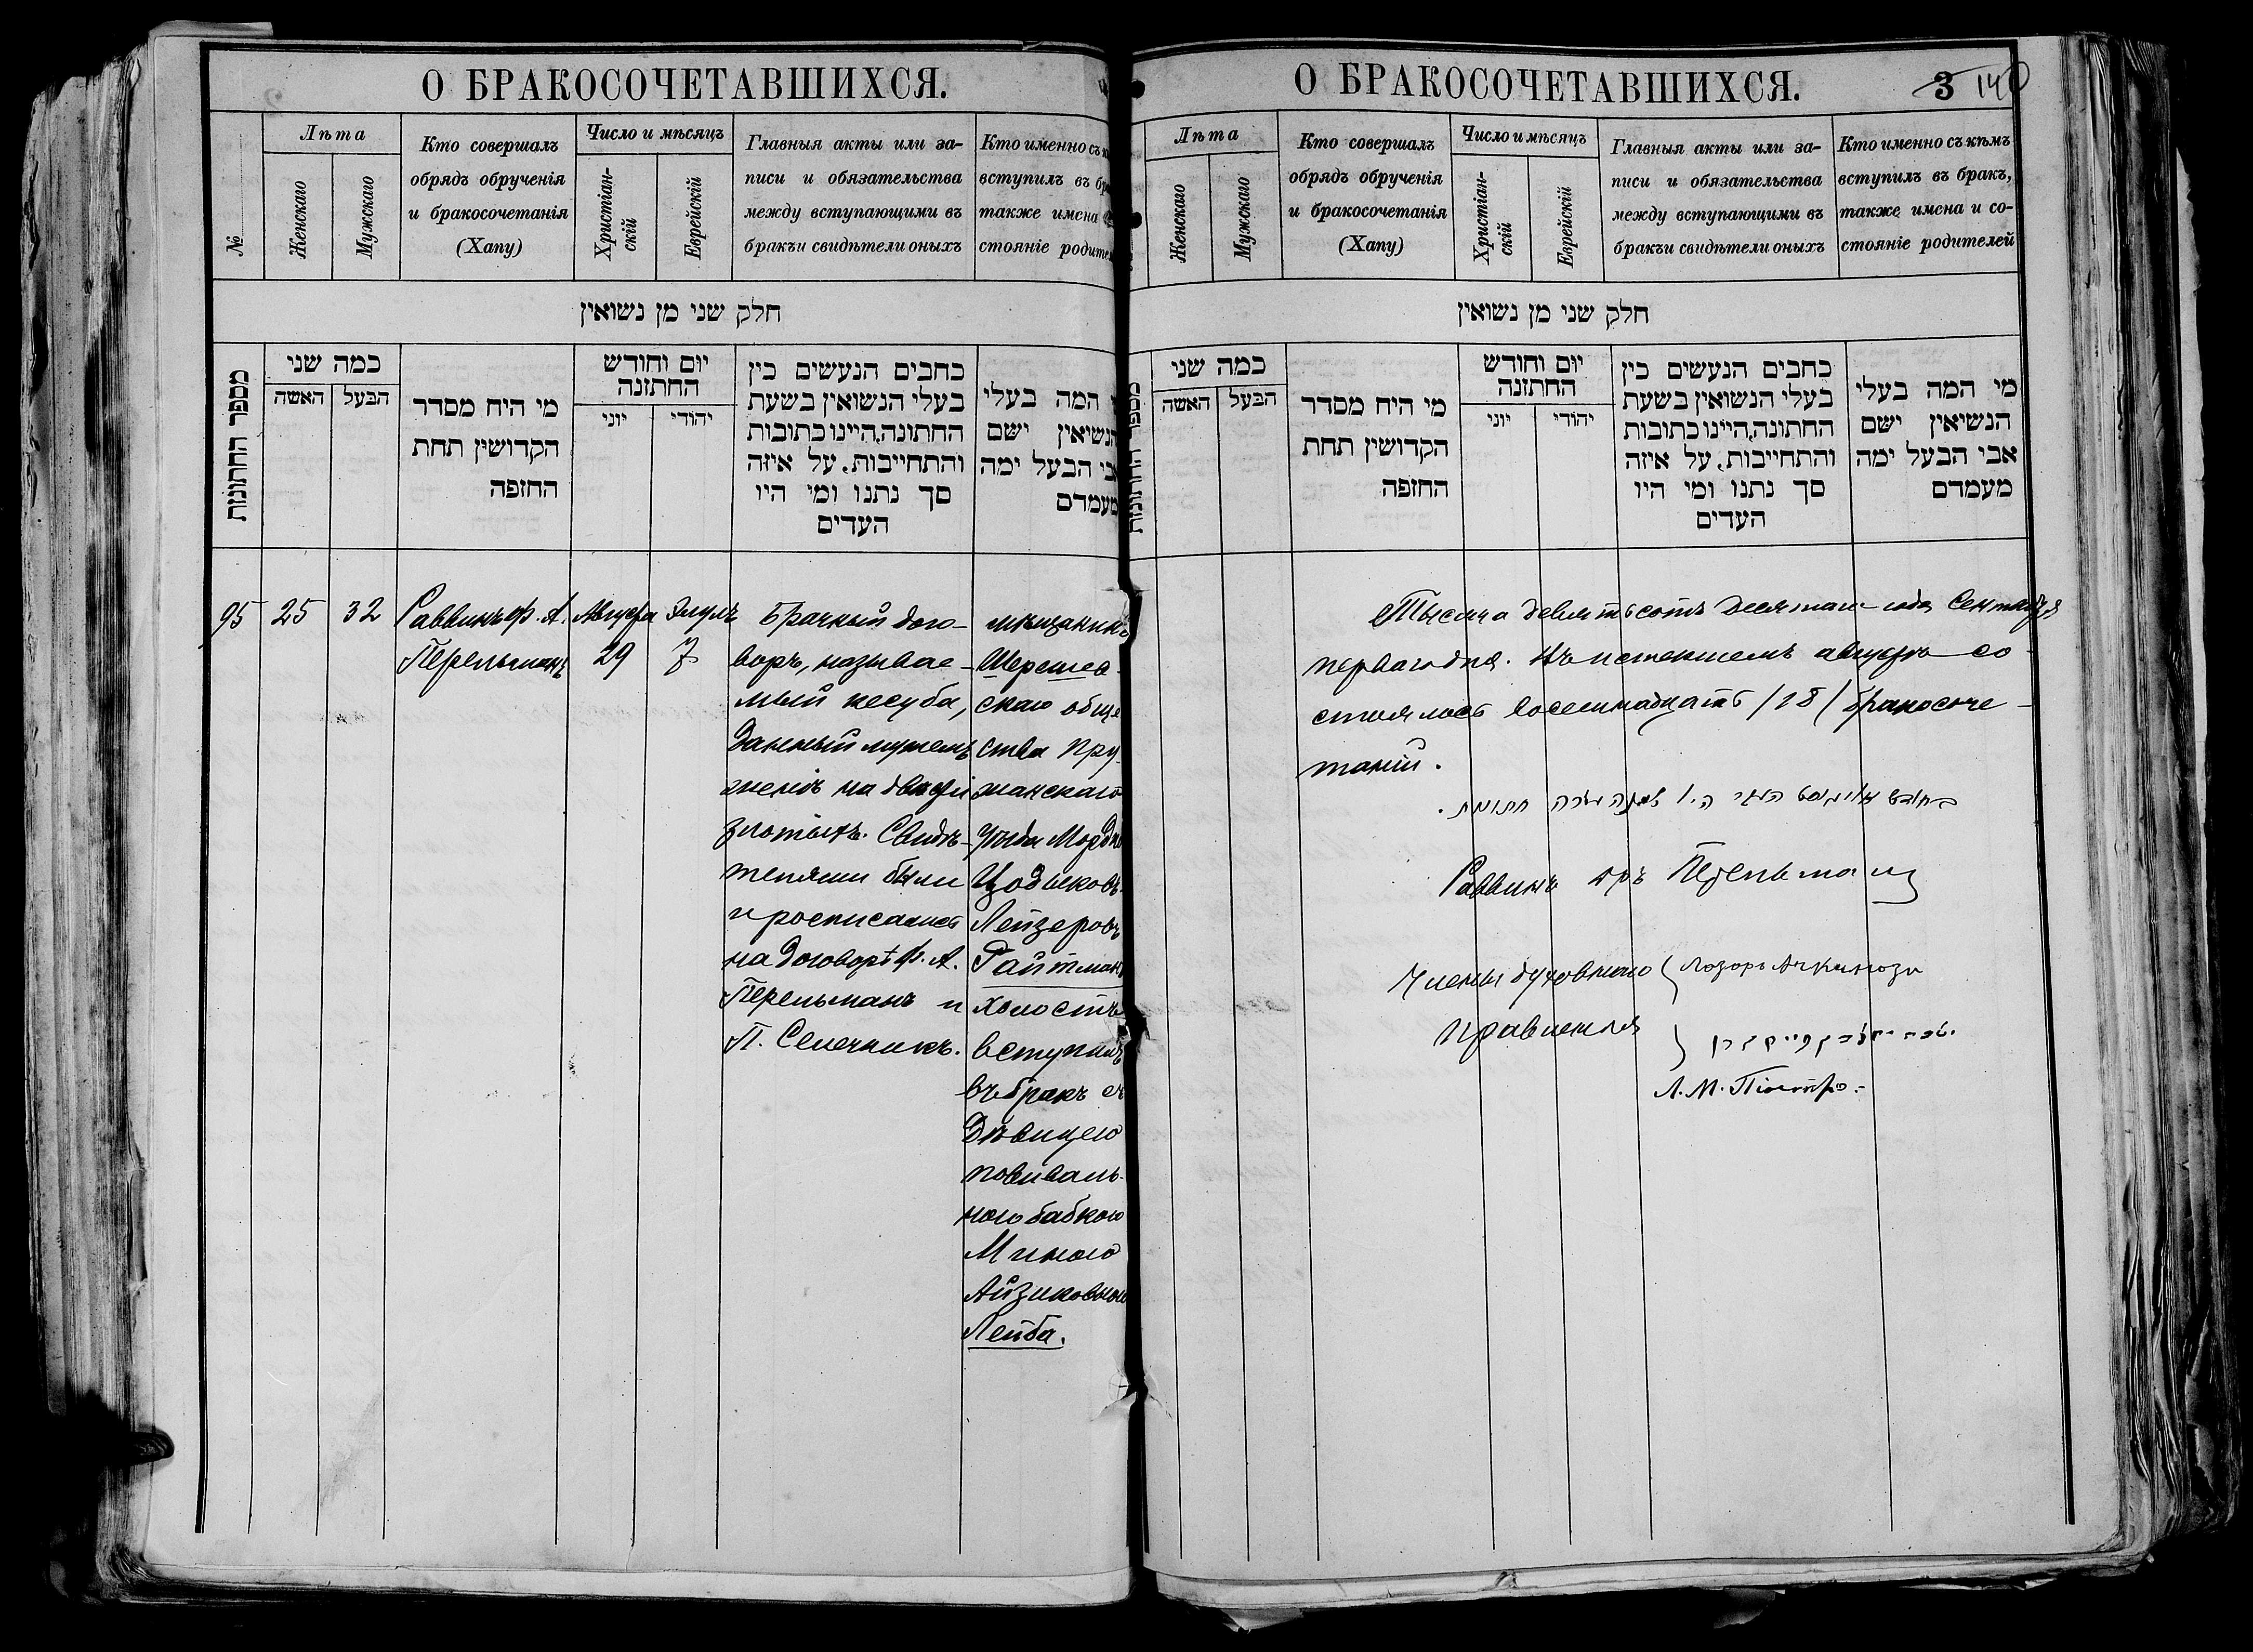 О БРАКОСОЧЕТАВШИХСЯ.
№
Лѣта
Женскаго
Мужскаго
Кто совершалъ
обрядъ обрученія
и бракосочетанія
(Хапу)
Число и мѣсяцъ
Христіан-
скій
Еврейскій
Главныя акты или за-
писи и обязательства
между вступающими въ
бракъи свидѣтели оныхъ
Кто именно съ
вступилъ въ
также имена
стояніе
חלק שני מן נשואין
מספר החתונות
כמה שני
האשה
הבעל
מי היח מסדר
הקדושין תחת
החופה
יום וחודש
החתונה
יוני
יהודי
כחבים הנעשים בין
בעלי הנשואין בשעת
החתונה,היינו כתובות
והתחייבות, על איזה
סך נתנו ומי היו
העדים
המה בעלי
הנשיאין ישם
אבי הבעל ימה
מעמדם
95
25
32
Раввинъ Ф. А.
Перельманъ
Августа
29
Элулъ
7
Брачный дого-
воръ, называе-
мый кесуба,
данный мужемъ
женѣ на двѣсти
злотыхъ. Свидѣ-
телями были
и росписались
на договорѣ Ф. А.
Перельманъ и
П. Селечникъ.
мѣщанинъ
Шерешев-
скаго обще
ства Пру-
жанскаго
уѣзда Мордко
Цодиковъ-
Лейзеровъ
Райтманъ
холостъ
вступилъ
въ бракъ съ
дѣвицею
повиваль-
ною бабкою
Миною
Айзиковною
Лейба.
О БРАКОСОЧЕТАВШИХСЯ.
3 140
Лѣта
Женскаго
Мужскаго
Кто совершалъ
обрядъ обрученія
и бракосочетанія
(Хапу)
Число и мѣсяцъ
Христіан-
скій
Еврейскій
Главныя акты или за-
писи и обязательства
между вступающими въ
бракъи свидѣтели оныхъ
Кто именно съ кѣмъ
вступилъ въ бракъ,
также имена и со-
стояніе родителей
חלק שני מן נשואין
כמה שני
האשה
הבעל
מי היח מסדר
הקדושין תחת
החופה
יום וחודש
החתונה
יוני
יהודי
כחבים הנעשים בין
בעלי הנשואין בשעת
החתונה,היינו כתובות
והתחייבות, על איזה
סך נתנו ומי היו
העדים
מי המה בעלי
הנשיאין ישם
אבי הבעל ימה
מעמדם
Тысяча девятьсотъ десятаго года Сентября
перваго дня. Въ истекшемъ августѣ со-
стоялось восемнадцать /18/ бракосоче-
таній.
בחודש אויגוסט
Раввинъ Перельманъ
Члены духовнаго
правленія
Л. М.